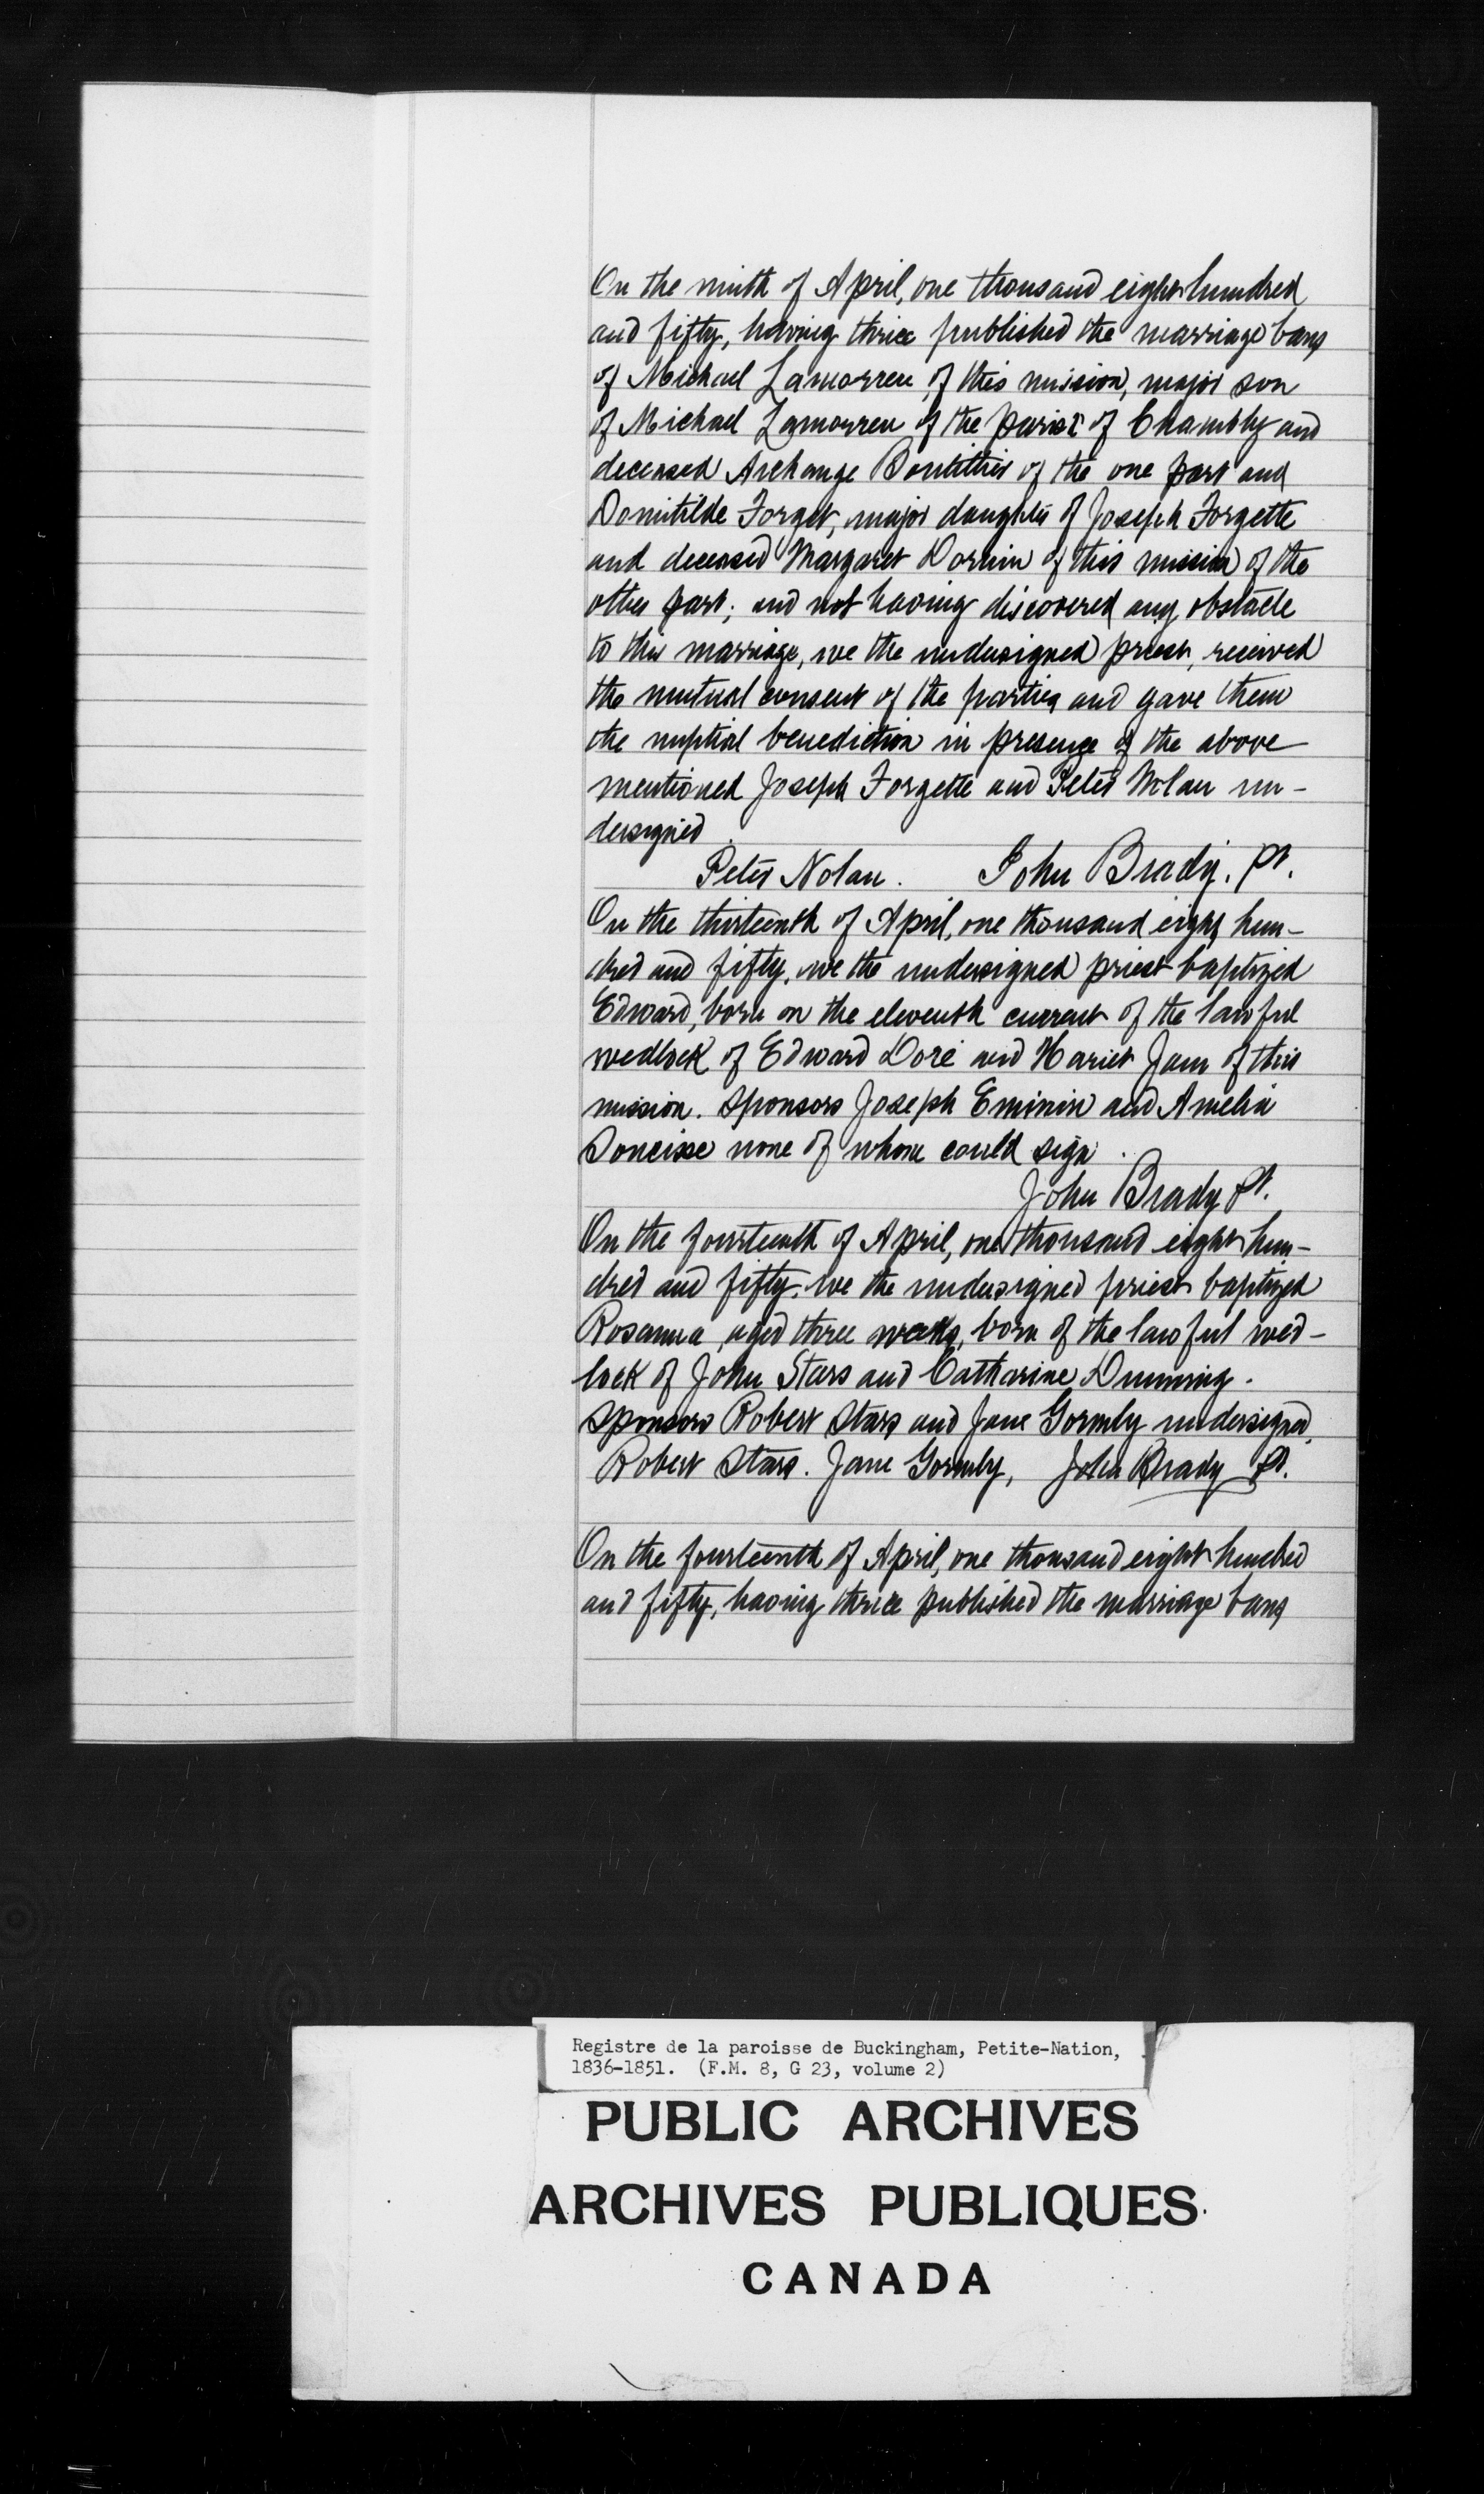 On the ninth of April, one thousand eight hundred
and fifty, having thrice published the marriage bans
of Michael Lamorreu, of this mission, major son
of Michael Lamorreu of the parish of Chambly and
deceased Archange of the one part and
Domitilde Forget, major daughter of Joseph Forgette
and deceased Margaret Dornin of this mission of the
other part; and not having discovered any obstacle
to this marriage, we the undersigned priest, received
the mutual consent of the parties and gave them
the nuptial benediction in presence of the above
mentioned Joseph Forgette and Peter Nolan un-
dersigned.
Peter Nolan. John Brady. Pt.
On the thirteenth of April, one thousand eight hun-
dred and fifty, we the undersigned priest baptized
Edward, born on the eleventh current of the lawful
wedlock of Edward Doré and Hariet Jam of this
mission. Sponsors Joseph Eminin and Amelia
Soncisse none of whom could sign.
John Brady Pt.
On the fourteenth of April, one thousand eight hun-
dred and fifty, we the undersigned priest baptized
Rosanna, aged three weeks, born of the lawful wed-
lock of John Stars and Catharine Dunning.
Sponsors Robert Stars and Jane Gormly undersigned.
Robert Stars. Jane Gormly, John Brady Pt.
On the fourteenth of April, one thousand eight hundred
and fifty, having thrice published the marriage bans
Registre de la paroisse de Buckingham, Petite-Nation,
1836-1851. (F.M. 8, G 23, volume 2)
PUBLIC ARCHIVES
ARCHIVES PUBLIQUES
CANADA